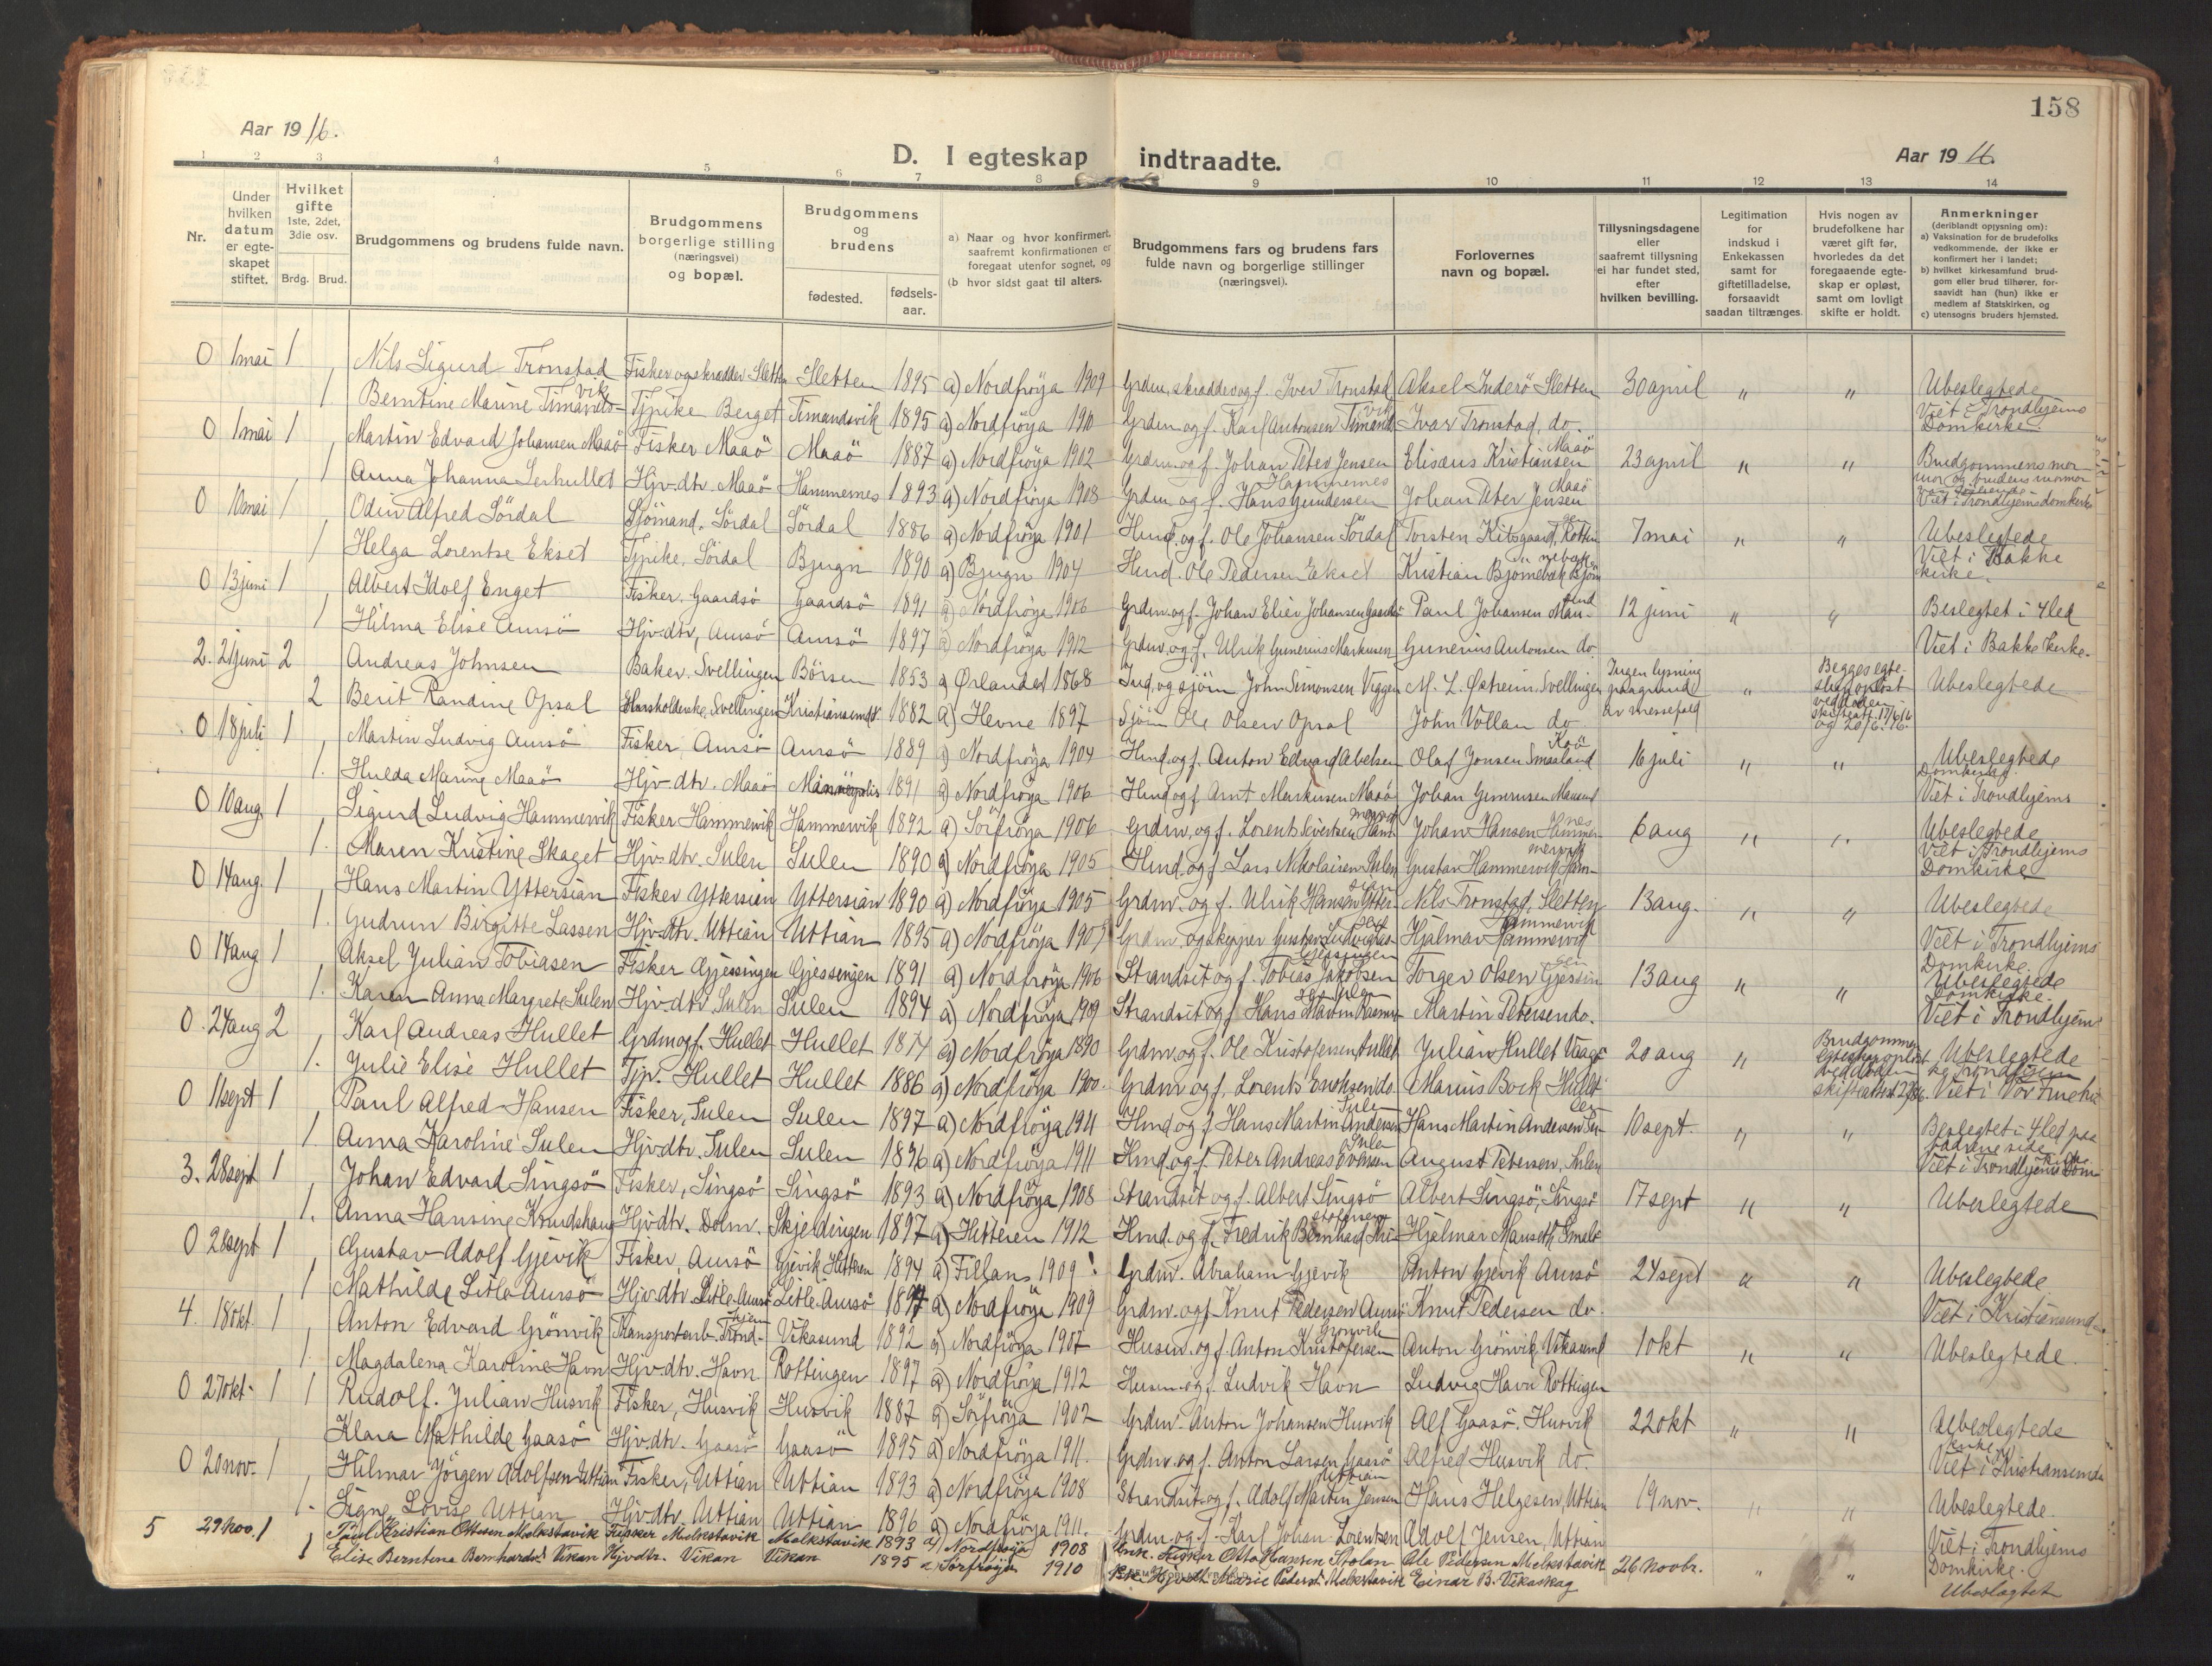 158
Aar 1916.
D. I egteskap indtraadte.
Aar 1916.
1 2 3 4 5 6 7 8 9 10 11 12 13 14
Nr.
Under hvilken datum er egte-skapet stiftet.
Hvilket gifte 1ste, 2det, 3die osv.
Brdg. Brud.
Brudgommens og brudens fulde navn.
Brudgommens borgerlige stilling (næringsvei) og bopæl.
Brudgommens og brudens
fødested. fødsels-aar.
a) Naar og hvor konfirmert, saafremt konfirmationen er foregaat utenfor sognet, og
(b hvor sidst gaat til alters.
Brudgommens fars og brudens fars fulde navn og borgerlige stillinger (næringsvei).
Forlovernes navn og bopæl.
Tillysningsdagene eller saafremt tillysning ei har fundet sted, efter hvilken bevilling.
Legitimation for indskud i Enkekassen samt for giftetilladelse, forsaavidt saadan tiltrænges.
Hvis nogen av brudefolkene har været gift før, hvorledes da det foregaaende egte-skap er opløst, samt om lovligt skifte er holdt.
Anmerkninger (deriblandt opjysning om):
a) Vaksination for de brudefolks vedkommende, der ikke er konfirmert her i landet;
b) hvilket kirkesamfund brud-gom eller brud tilhører, for-saavidt han (hun) ikke er medlem af Statskirken, og
c) utensogns bruders hjemsted.
0 1 mai 1 Nils Sigurd Tronstad Fisker og skrædder Sletten Sletten 1895 a) Nordfröya 1909 Grdm. skrædder og f. Iver Tronstad Aksel Inderö Sletten 30 april " " Ubeslegtede
1 Berntine Marine Timandsvik Tjpike Berget Timandsvik 1895 a) Nordfröya 1910 Grdm. og f. Karl Antonsen Timandsvik Ivar Tronstad, do. Viet i Trondhjems Domkirke
0 1 mai 1 Martin Edvard Johansen Maaö Fisker Maaö Maaö 1887 a) Nordfröya 1902 Grdm. og f. Johan Peter Jensen Elisæus Kristiansen Maaö 23 april " " Brudgommens mor-mor og brudens mormor
1 Anna Johanna Lerhullet Hjv. dtr. Maaö Hammernes 1893 a) Nordfröya 1908 Grdm. og f. Hans Gundersen Hammernes Johan Peter Jensen Maaö Viet i Trondhjems domkirke
0 10 mai 1 Odin Alfred Sördal Sjömand. Sördal Sördal 1886 a) Nordfröya 1901 Hmd. og f. Ole Johansen Sördal Torsten Kitsgaard, 7 mai " " Ubeslegtede
1 Helga Lorentse Ekset Tjpike, Sördal Bjugn 1890 a) Bjugn 1904 Hmd. Ole Pedersen Ekset Kristian Björnebæk Viet i Bakke kirke.
0 13 juni 1 Albert Idolf Enget Fisker. Gaardsö Gaardsö 1891 a) Nordfröya 1906 Grdm. og f. Johan Eliev Johansen Paul Johansen 12 juni " " Beslegtet i 4 led
1 Hilma Elise Aursö Hjv. dtr, Aursö Aursö 1897 a) Nordfröya 1912 Grdm. og f. Ulrik Gunerius Markusen Gunerius Antonsen do Viet i Bakke Kirke.
2. 21 juni 2 Andreas Johnsen Baker. Svellingen Börsen 1853 a) Ørlandet 1868 Ind. og sjöm John Simonsen Viggen M. L. Østreim, Svellingen Ingen lysning paagrund av messefald " Begges egte-skap opløst ved døden skifteatt. 17/6 16 og 20/6. 16. Ubeslegtede
2 Berit Randine Opsal Husholderske, Svellingen 1882 a) Hevne 1897 Sjöm Ole Olsen Opsal John Vollan do
0 18 juli 1 Martin Ludvig Aursö Fisker Aursö Aursö 1889 a) Nordfröya 1904 Hmd. og f. Anton Edvard Abelsen Olaf Jonsen 16 juli " " Ubeslegtede
1. Hulda Marine Maaö Hjv. dtr. Maaö 1891 a) Nordfröya 1906 Hmd og f Arnt Markusen Maaö Johan Gunersen Viet i Trondhjems Domkirke
0 10 aug. 1 Sigurd Ludvig Hammervik Fisker Hammervik Hammervik 1892 a) Sörfröya 1906 Grdm. og f. Lorents Sivertsen Johan Hansen 6 aug " " Ubeslegtede
1. Maren Kristine Skaget Hjv. dtr. Sulen Sulen 1890 a) Nordfröya 1905 Hmd. og f Lars Nikolaisen Sulen Gustav Hammervik Viet i Trondhjems Domkirke
0 14 aug. 1 Hans Martin Yttersian Fisker Yttersian Yttersian 1890 a) Nordfröya 1905 Grdm. og f. Ulrik Hansen Yttersian Nils Tronstad, Sletten 13 aug. " " Ubeslegtede
1. Gudrun Birgitte Lassen Hjv. dtr. Uttian Uttian 1895 a) Nordfröya 1909 Grdm. og skipper Gustav Ludvig Lassen Hjalmar Hammervik Viet i Trondhjems Domkirke.
0 14 aug 1 Aksel Julian Tobiasen Fisker Gjessingen Gjessingen 1891 a) Nordfröya 1906 Strandsit og f. Tobias Jakobsen Gjessingen Torger Olsen Gjessingen 13 aug " " Ubeslegtede
1. Karen Anna Margrete Sulen Hjv. dtr Sulen Sulen 1894 a) Nordfröya 1909 Strandsit og f Hans Martin Martin Petersen do. Viet i Trondhjems Domkirke.
0. 24 aug 2 Karl Andreas Hullet Grdm og f. Hullet Hullet 1874 a) Nordfröya 1890 Grdm. og f. Ole Kristofersen Hullet Julian Hullet 20 aug " Ubeslegtede
1. Julie Elise Hullet Tjp. Hullet Hullet 1886 a) Nordfröya 1900. Grdm og f. Lorents Enoksen do Marius Bock Hullet Viet i Vor Frue
0 11 sept 1 Paul Alfred Hansen Fisker, Sulen Sulen 1897 a) Nordfröya 1911 Hmd og f. Hans Martin Andersen Sulen Hans Martin Andersen 10 sept. " " Beslegtet i 4 led paa fædrene side
1 Anna Karoline Sulen Hjv. dtr. Sulen Sulen 1896 a) Nordfröya 1911 Hmd. og f. Peter Andreas August Petersen, Sulen Viet i Trondhjems Dom
3. 28 sept 1 Johan Edvard Singsö Fisker, Singsö Singsö 1893 a) Nordfröya 1908 Strandsit og f. Albert Singsö Albert Singsö, Singsö 17 sept " " Ubeslegtede
1. Anna Hansine Knudshaug Hjv dtr. Dolm. Skjeldingen 1897 a) Hitteren 1912 Hmd. og f. Fredrik Bernhard Hjalmar
0 28 sept 1 Gustav Adolf Gjevik Fisker, Aursö Gjevik Hitteren 1894 a) Fillans 1909 Grdm. Abraham Gjevik Anton Gjevik Aursö 24 sept " " Ubeslegtede
1 Mathilde Litle Aursö Hjv. dtr. Litle Aursö Litle Aursö 1894 a) Nordfröya 1909 Grdm. og f Knut Pedersen Aursö Knut Pedersen do. Viet i Kristiansund
4. 18 okt. 1 Anton Edvard Grönvik Transportarb. Trondhjem Vikasund 1892 a) Nordfröya 1907 Husm. og f. Anton Kristofersen Grönvik Anton Grönvik Vikasund 1 okt " " Ubeslegtede.
1. Magdalena Karoline Havn Hjv. dtr. Havn Rottingen 1897 a) Nordfröya 1912 Husm og f. Ludvik Havn Ludvig Havn Rottingen
0 27 okt. 1 1 Rudolf. Julian Husvik Fisker, Husvik Husvik 1887 a) Sörfröya 1902 Grdm. Anton Johansen Husvik Alf Gaasö. Husvik 22 okt " " Ubeslegtede
Klara Mathilde Gaasö Hjv. dtr. Gaasö Gaasö 1895 a) Nordfröya 1911. Grdm. og f. Anton Larsen Gaasö Alfred Husvik do. Viet i Kristiansunds kirke
0 20 nov. 1 Hilmar Jörgen Adolfsen Uttian Fisker, Uttian Uttian 1893 a) Nordfröya 1908 Strandsit og f. Adolf Martin Jensen Uttian Hans Helgesen, Uttian 19 nov. " " Ubeslegtede.
1. Signe Lovise Uttian Hjv. dtr. Uttian Uttian 1896 a) Nordfröya 1911. Grdm. og f. Karl Johan Lorentsen Adolf Jensen, Uttian Viet i Trondhjems Domkirke.
5 29 nov. 1 Paul Kristian Ottesen Melkstavik Fisker Melkstavik Melkstavik 1893 a) Nordfröya 1908 Fisker Otto Hansen Stolan Ole Pedersen Melkstavik 26 novbr. " " Ubeslegtet
1 Elise Berntina Bernhardsd. Vikan Hjvdtr. Vikan Vikan 1895 a Sörfröya 1910 Marie Pedersd. Melkstavik Einar B. Vikaskag